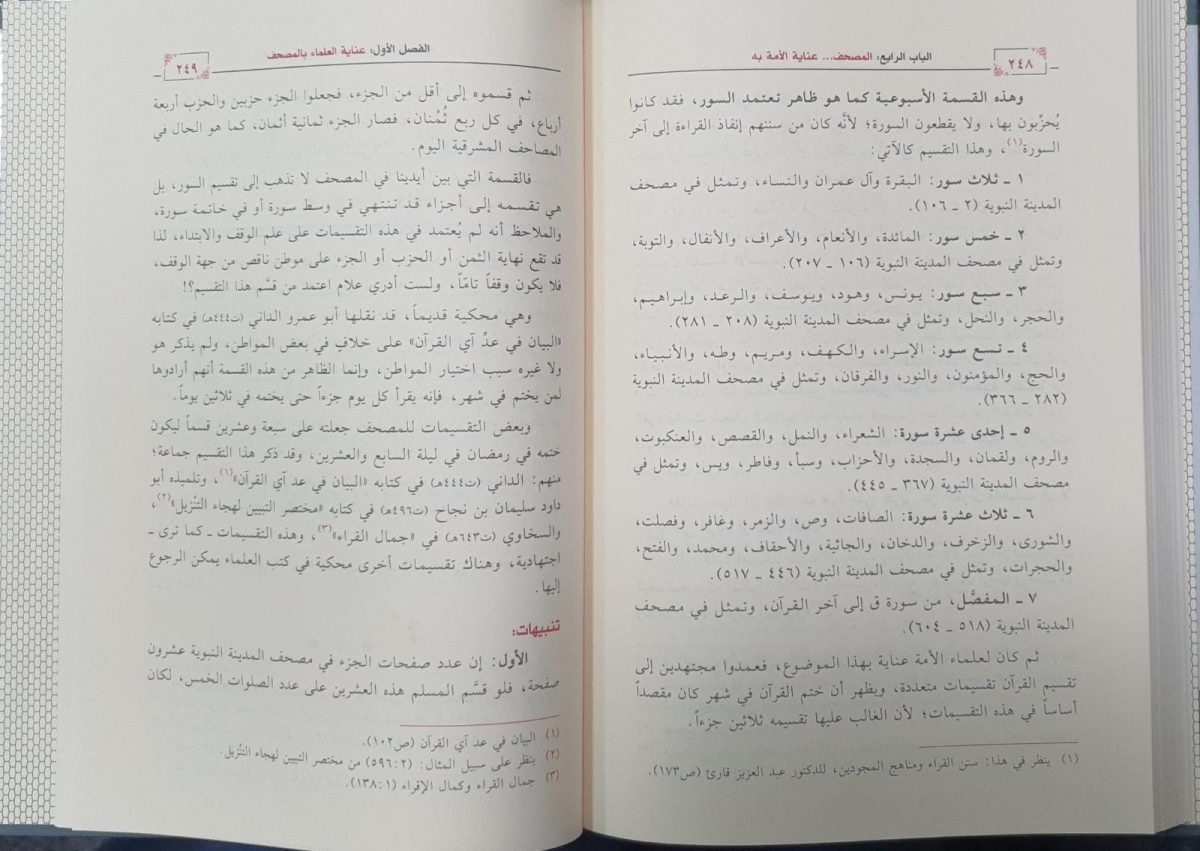 ٢٤٨
الباب الرابع: المصحف... عناية الأمة به
وهذه القسمة الأسبوعية كما هو ظاهر تعتمد السور، فقد كانوا
يُحزِّبون بها، ولا يقطعون السورة؛ لأنَّه كان من سننهم إنفاذ القراءة إلى آخر
السورة(١)، وهذا التقسيم كالآتي:
١ ـ ثلاث سور: البقرة وآل عمران والنساء، وتمثل في مصحف
المدينة النبوية (٢ ـ ١٠٦).
٢ ـ خمس سور: المائدة، والأنعام، والأعراف، والأنفال، والتوبة،
وتمثل في مصحف المدينة النبوية (١٠٦ ـ ٢٠٧).
٣ ـ سبع سور: يونس، وهود، ويوسف، والرعد، وإبراهيم،
والحجر، والنحل، وتمثل في مصحف المدينة النبوية (٢٠٨ ـ ٢٨١).
٤ ـ تسع سور: الإسراء، والكهف، ومريم، وطه، والأنبياء،
والحج، والمؤمنون، والنور، والفرقان، وتمثل في مصحف المدينة النبوية
(٢٨٢ ـ ٣٦٦).
٥ ـ إحدى عشرة سورة: الشعراء، والنمل، والقصص، والعنكبوت،
والروم، ولقمان، والسجدة، والأحزاب، وسبأ، وفاطر، ويس، وتمثل في
مصحف المدينة النبوية (٣٦٧ ـ ٤٤٥).
٦ ـ ثلاث عشرة سورة: الصافات، وص، والزمر، وغافر، وفصلت،
والشورى، والزخرف، والدخان، والجاثية، والأحقاف، ومحمد، والفتح،
والحجرات، وتمثل في مصحف المدينة النبوية (٤٤٦ ـ ٥١٧).
٧ ـ المفصَّل، من سورة ق إلى آخر القرآن، وتمثل في مصحف
المدينة النبوية (٥١٨ ـ ٦٠٤).
ثم كان لعلماء الأمة عناية بهذا الموضوع، فعمدوا مجتهدين إلى
تقسيم القرآن تقسيمات متعددة، ويظهر أن ختم القرآن في شهر كان مقصداً
أساساً في هذه التقسيمات؛ لأن الغالب عليها تقسيمه ثلاثين جزءاً.
(١) ينظر في هذا: سنن القراء ومناهج المجودين، للدكتور عبد العزيز قارئ (ص١٧٣).
الفصل الأول: عناية العلماء بالمصحف
٢٤٩
ثم قسموه إلى أقل من الجزء، فجعلوا الجزء حزبين والحزب أربعة
أرباع، في كل ربع ثُمُنان، فصار الجزء ثمانية أثمان، كما هو الحال في
المصاحف المشرقية اليوم.
فالقسمة التي بين أيدينا في المصحف لا تذهب إلى تقسيم السور، بل
هي تقسمه إلى أجزاء قد تنتهي في وسط سورة أو في خاتمة سورة،
والملاحظ أنه لم يُعتمد في هذه التقسيمات على علم الوقف والابتداء، لذا
قد تقع نهاية الثمن أو الحزب أو الجزء على موطن ناقص من جهة الوقف،
فلا يكون وقفاً تامّاً، ولست أدري علام اعتمد من قسَّم هذا التقسيم؟!
وهي محكية قديماً، قد نقلها أبو عمرو الداني (ت٤٤٤هـ) في كتابه
«البيان في عدِّ آي القرآن» على خلافٍ في بعض المواطن، ولم يذكر هو
ولا غيره سبب اختيار المواطن، وإنما الظاهر من هذه القسمة أنهم أرادوها
لمن يختم في شهر، فإنه يقرأ كل يوم جزءاً حتى يختمه في ثلاثين يوماً.
وبعض التقسيمات للمصحف جعلته على سبعة وعشرين قسماً ليكون
ختمه في رمضان في ليلة السابع والعشرين، وقد ذكر هذا التقسيم جماعة؛
منهم: الداني (ت٤٤٤هـ) في كتابه «البيان في عد آي القرآن»(١)، وتلميذه أبو
داود سليمان بن نجاح (ت٤٩٦هـ) في كتابه «مختصر التبيين لهجاء التنْزيل»(٢)،
والسخاوي (ت٦٤٣هـ) في «جمال القراء»(٣)، وهذه التقسيمات ـ كما ترى ـ
اجتهادية، وهناك تقسيمات أخرى محكية في كتب العلماء يمكن الرجوع
إليها.
تنبيهات:
الأول: إن عدد صفحات الجزء في مصحف المدينة النبوية عشرون
صفحة، فلو قسَّم المسلم هذه العشرين على عدد الصلوات الخمس، لكان
(١) البيان في عد آي القرآن (ص١٠٢).
(٢) ينظر على سبيل المثال: (٥٩٦:٢) من مختصر التبيين لهجاء التنْزيل.
(٣) جمال القراء وكمال الإقراء (١٣٨:١).